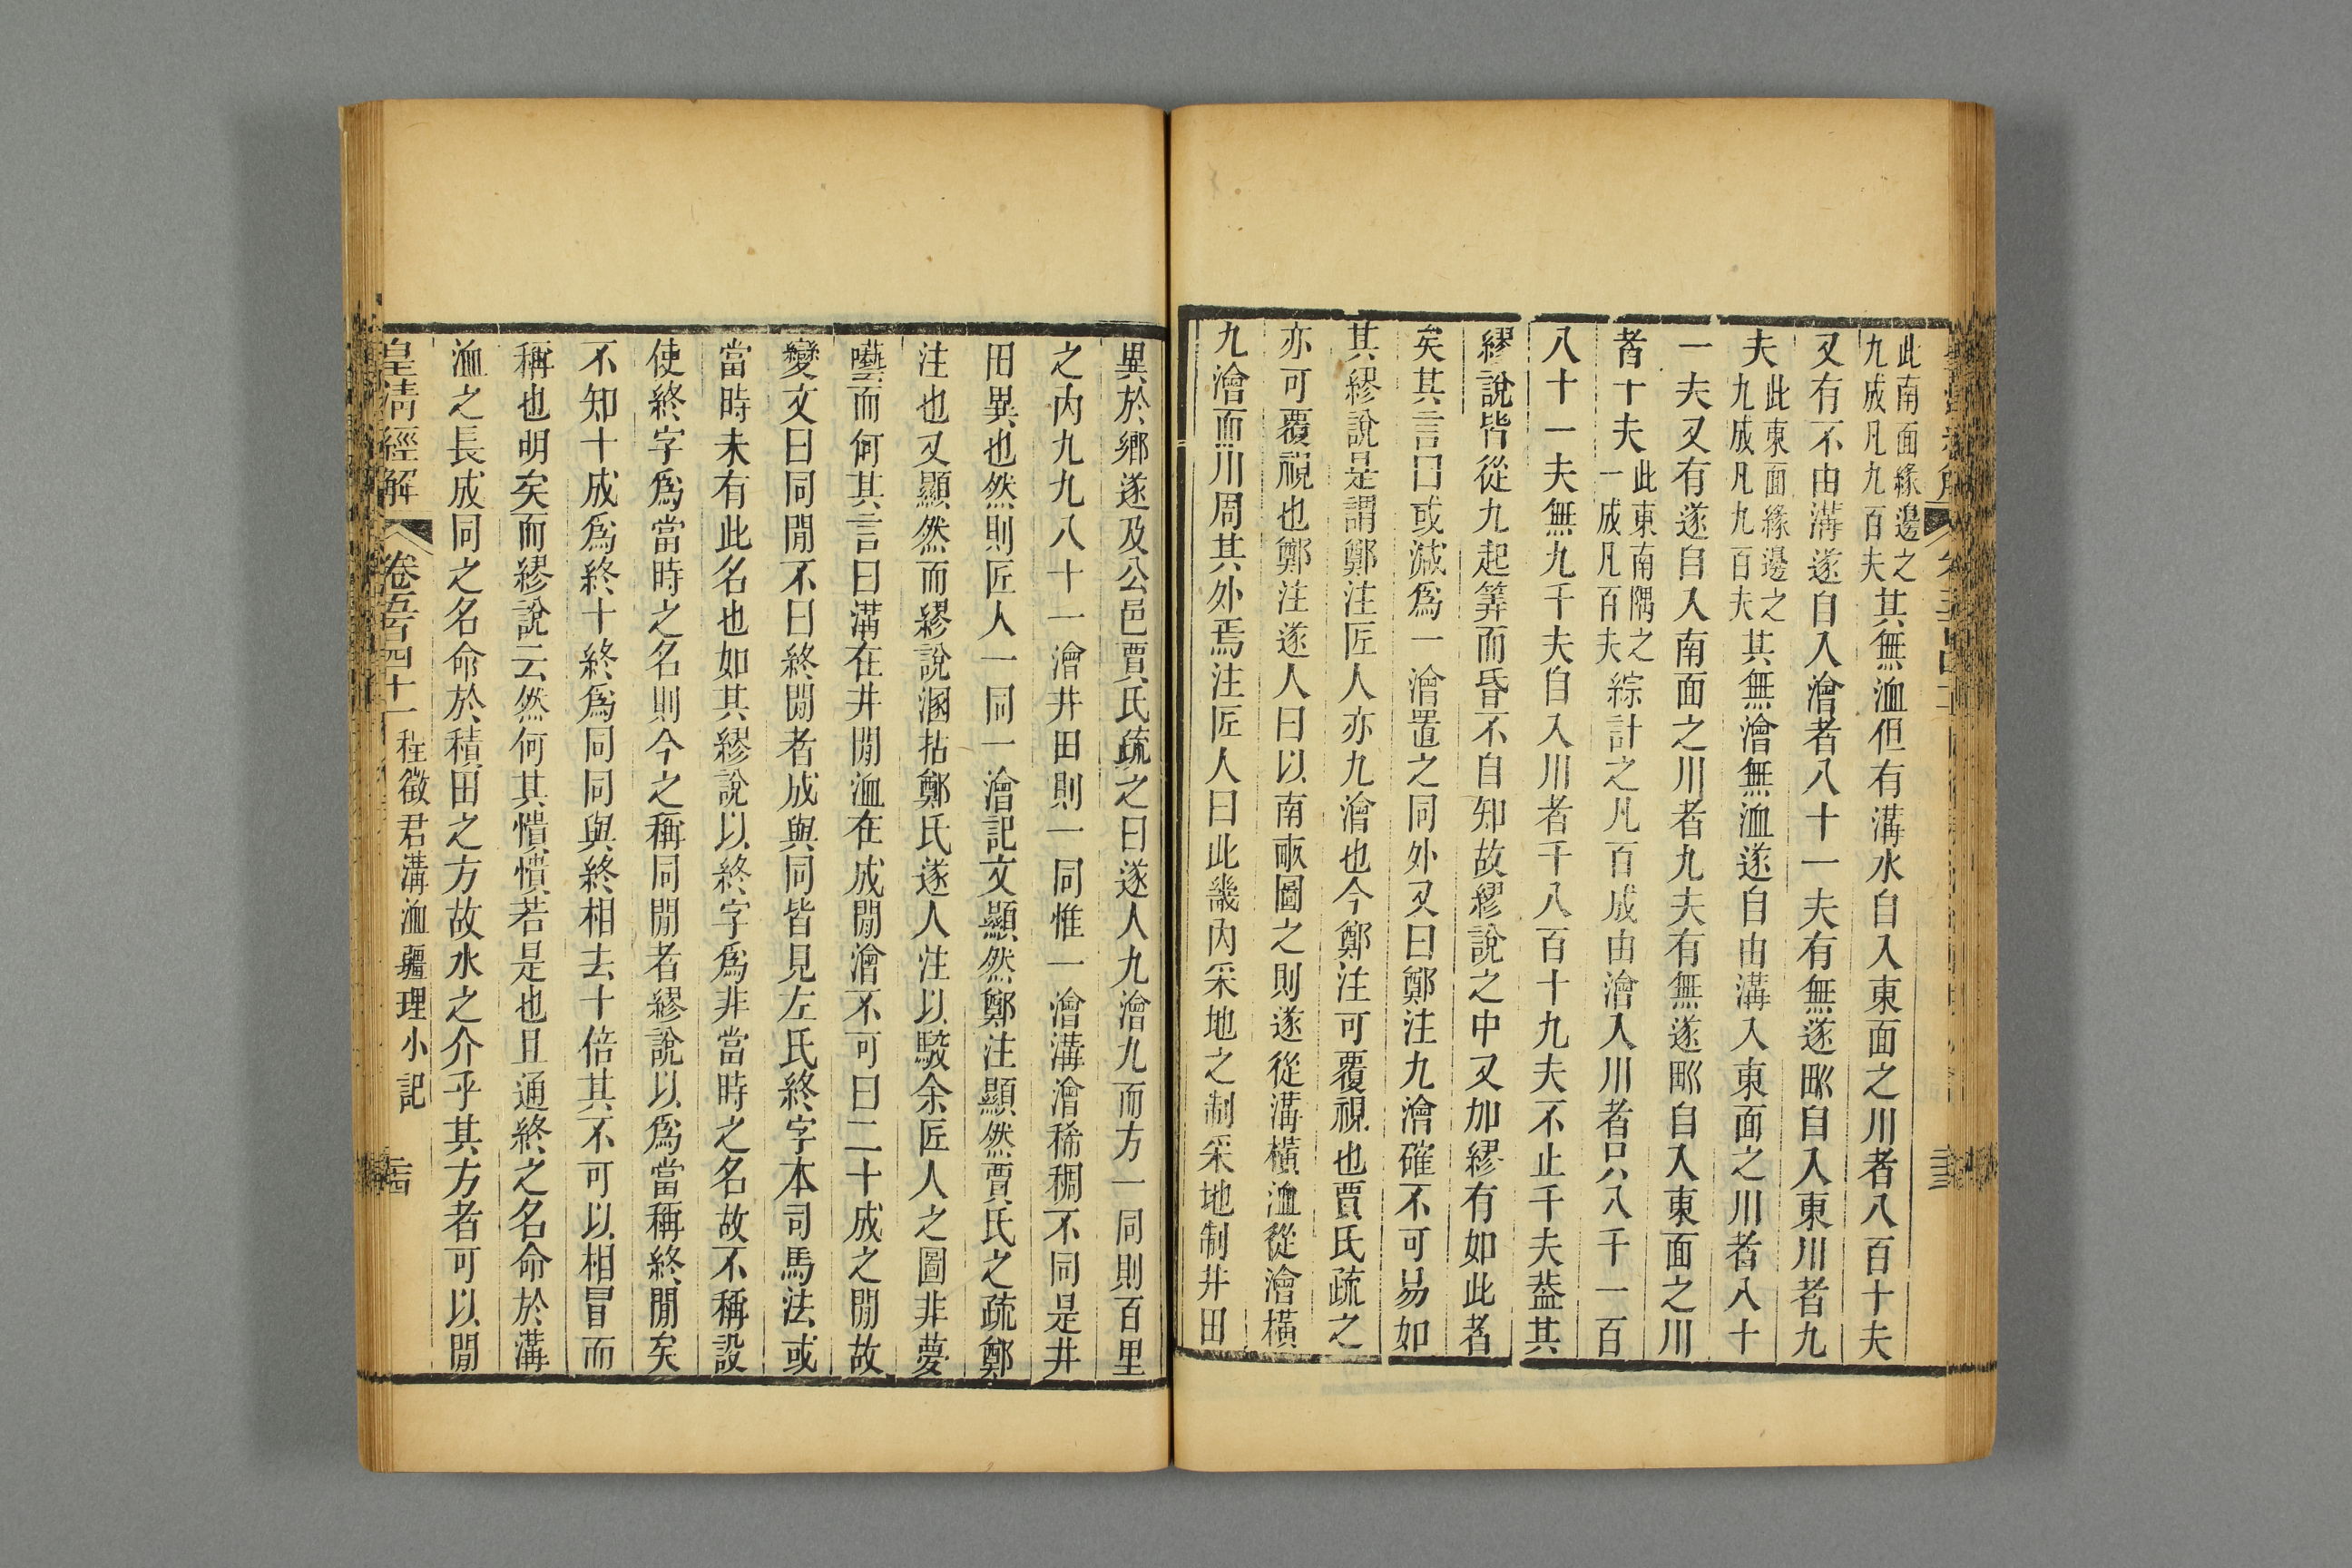 此南面緣邊之九成凡九百夫其無洫但有溝水自入東面之川者八百十夫
又有不由溝遂自入澮者八十一夫有無遂畎自入東川者九
夫此東面緣邊之九成凡九百夫其無澮無洫遂自由溝入東面之川者八十
一夫又有遂自入南面之川者九夫有無遂畎自入東面之川
者十夫此東南隅之一成凡百夫綜計之凡百成由澮入川者只八千一百
八十一夫無九千夫自入川者千八百十九夫不止千夫葢其
繆說皆從九起算而昏不自知故繆說之中又加繆有如此者
矣其言曰或減爲一澮置之同外又曰鄭注九澮確不可易如
其繆說是謂鄭注匠人亦九澮也今鄭注可覆視也賈氏疏之
亦可覆視也鄭注遂人曰以南畝圖之則遂從溝橫洫從澮橫
九澮而川周其外焉注匠人曰此畿內采地之制采地制井田
異於鄉遂及公邑賈氏疏之曰遂人九澮九而方一同則百里
之內九九八十一澮井田則一同惟一澮溝澮稀稠不同是井
田異也然則匠人一同一澮記文顯然鄭注顯然賈氏之疏鄭
注也又顯然而繆說溷拈鄭氏遂人注以駮余匠人之圖非夢
囈而何其言曰溝在井閒洫在成閒澮不可曰二十成之閒故
變文曰同閒不曰終閒者成與同皆見左氏終字本司馬法或
當時未有此名也如其繆說以終字爲非當時之名故不稱設
使終字爲當時之名則今之稱同閒者繆說以爲當稱終閒矣
不知十成爲終十終爲同同與終相去十倍其不可以相冒而
稱也明矣而繆說云然何其憒憒若是也且通終之名命於溝
洫之長成同之名命於積田之方故水之介乎其方者可以閒
皇清經解 卷五百四十一 程徵君溝洫疆理小記 三四